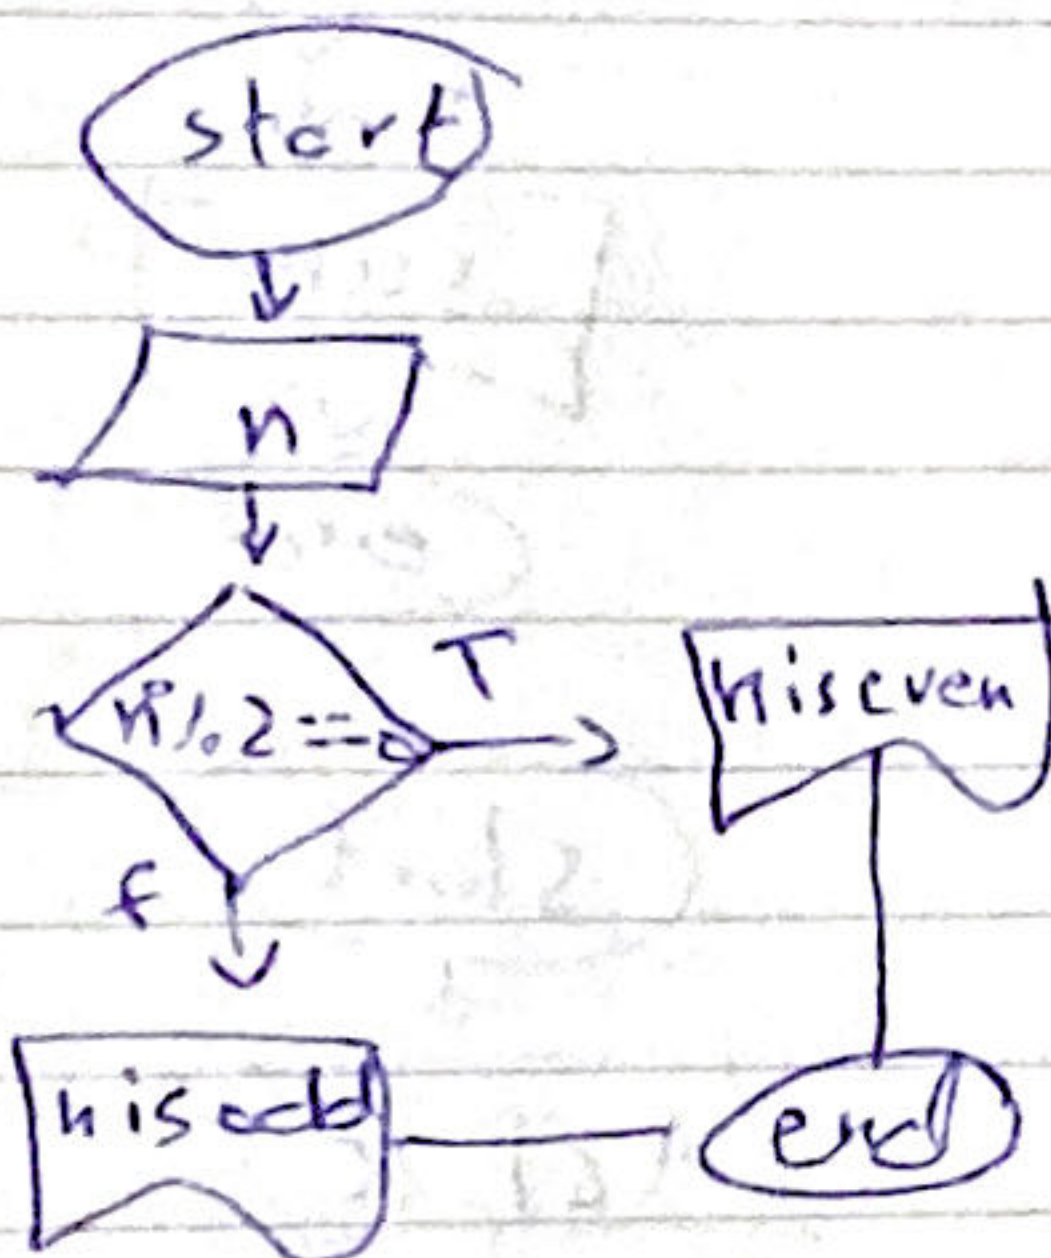 start
n
n%2==0
T
n is even
f
n is odd
end